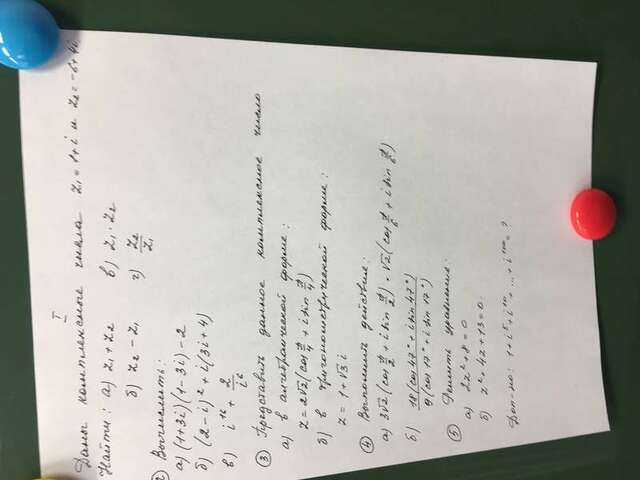 I
Даны комплексные числа z₁ = 1+i и z₂ = -6+4i,
Найти: а) z₁ + z₂ в) z₁ · z₂
б) z₂ - z₁ г) z₂/z₁
2 Вычислить:
а) (1+3i)(1-3i) - 2
б) (2-i)² + i(3i+4)
в) i¹⁶ + 2/i⁶
3 Представить данное комплексное число
а) в алгебраической форме:
z = 2√2(cos π/4 + i sin π/4)
б) в тригонометрической форме:
z = 1+√3 i
4 Выполнить действия:
а) 3√2(cos π/2 + i sin π/2) · √2(cos π/6 + i sin π/6)
б) 18(cos 47° + i sin 47°)/9(cos 17° + i sin 17°)
5 Решить уравнения:
а) 2z² + 8 = 0
б) z² + 4z + 13 = 0.
Доп-но: 1 + i⁵ + i¹⁰ + ... + i¹⁰⁰ = ?